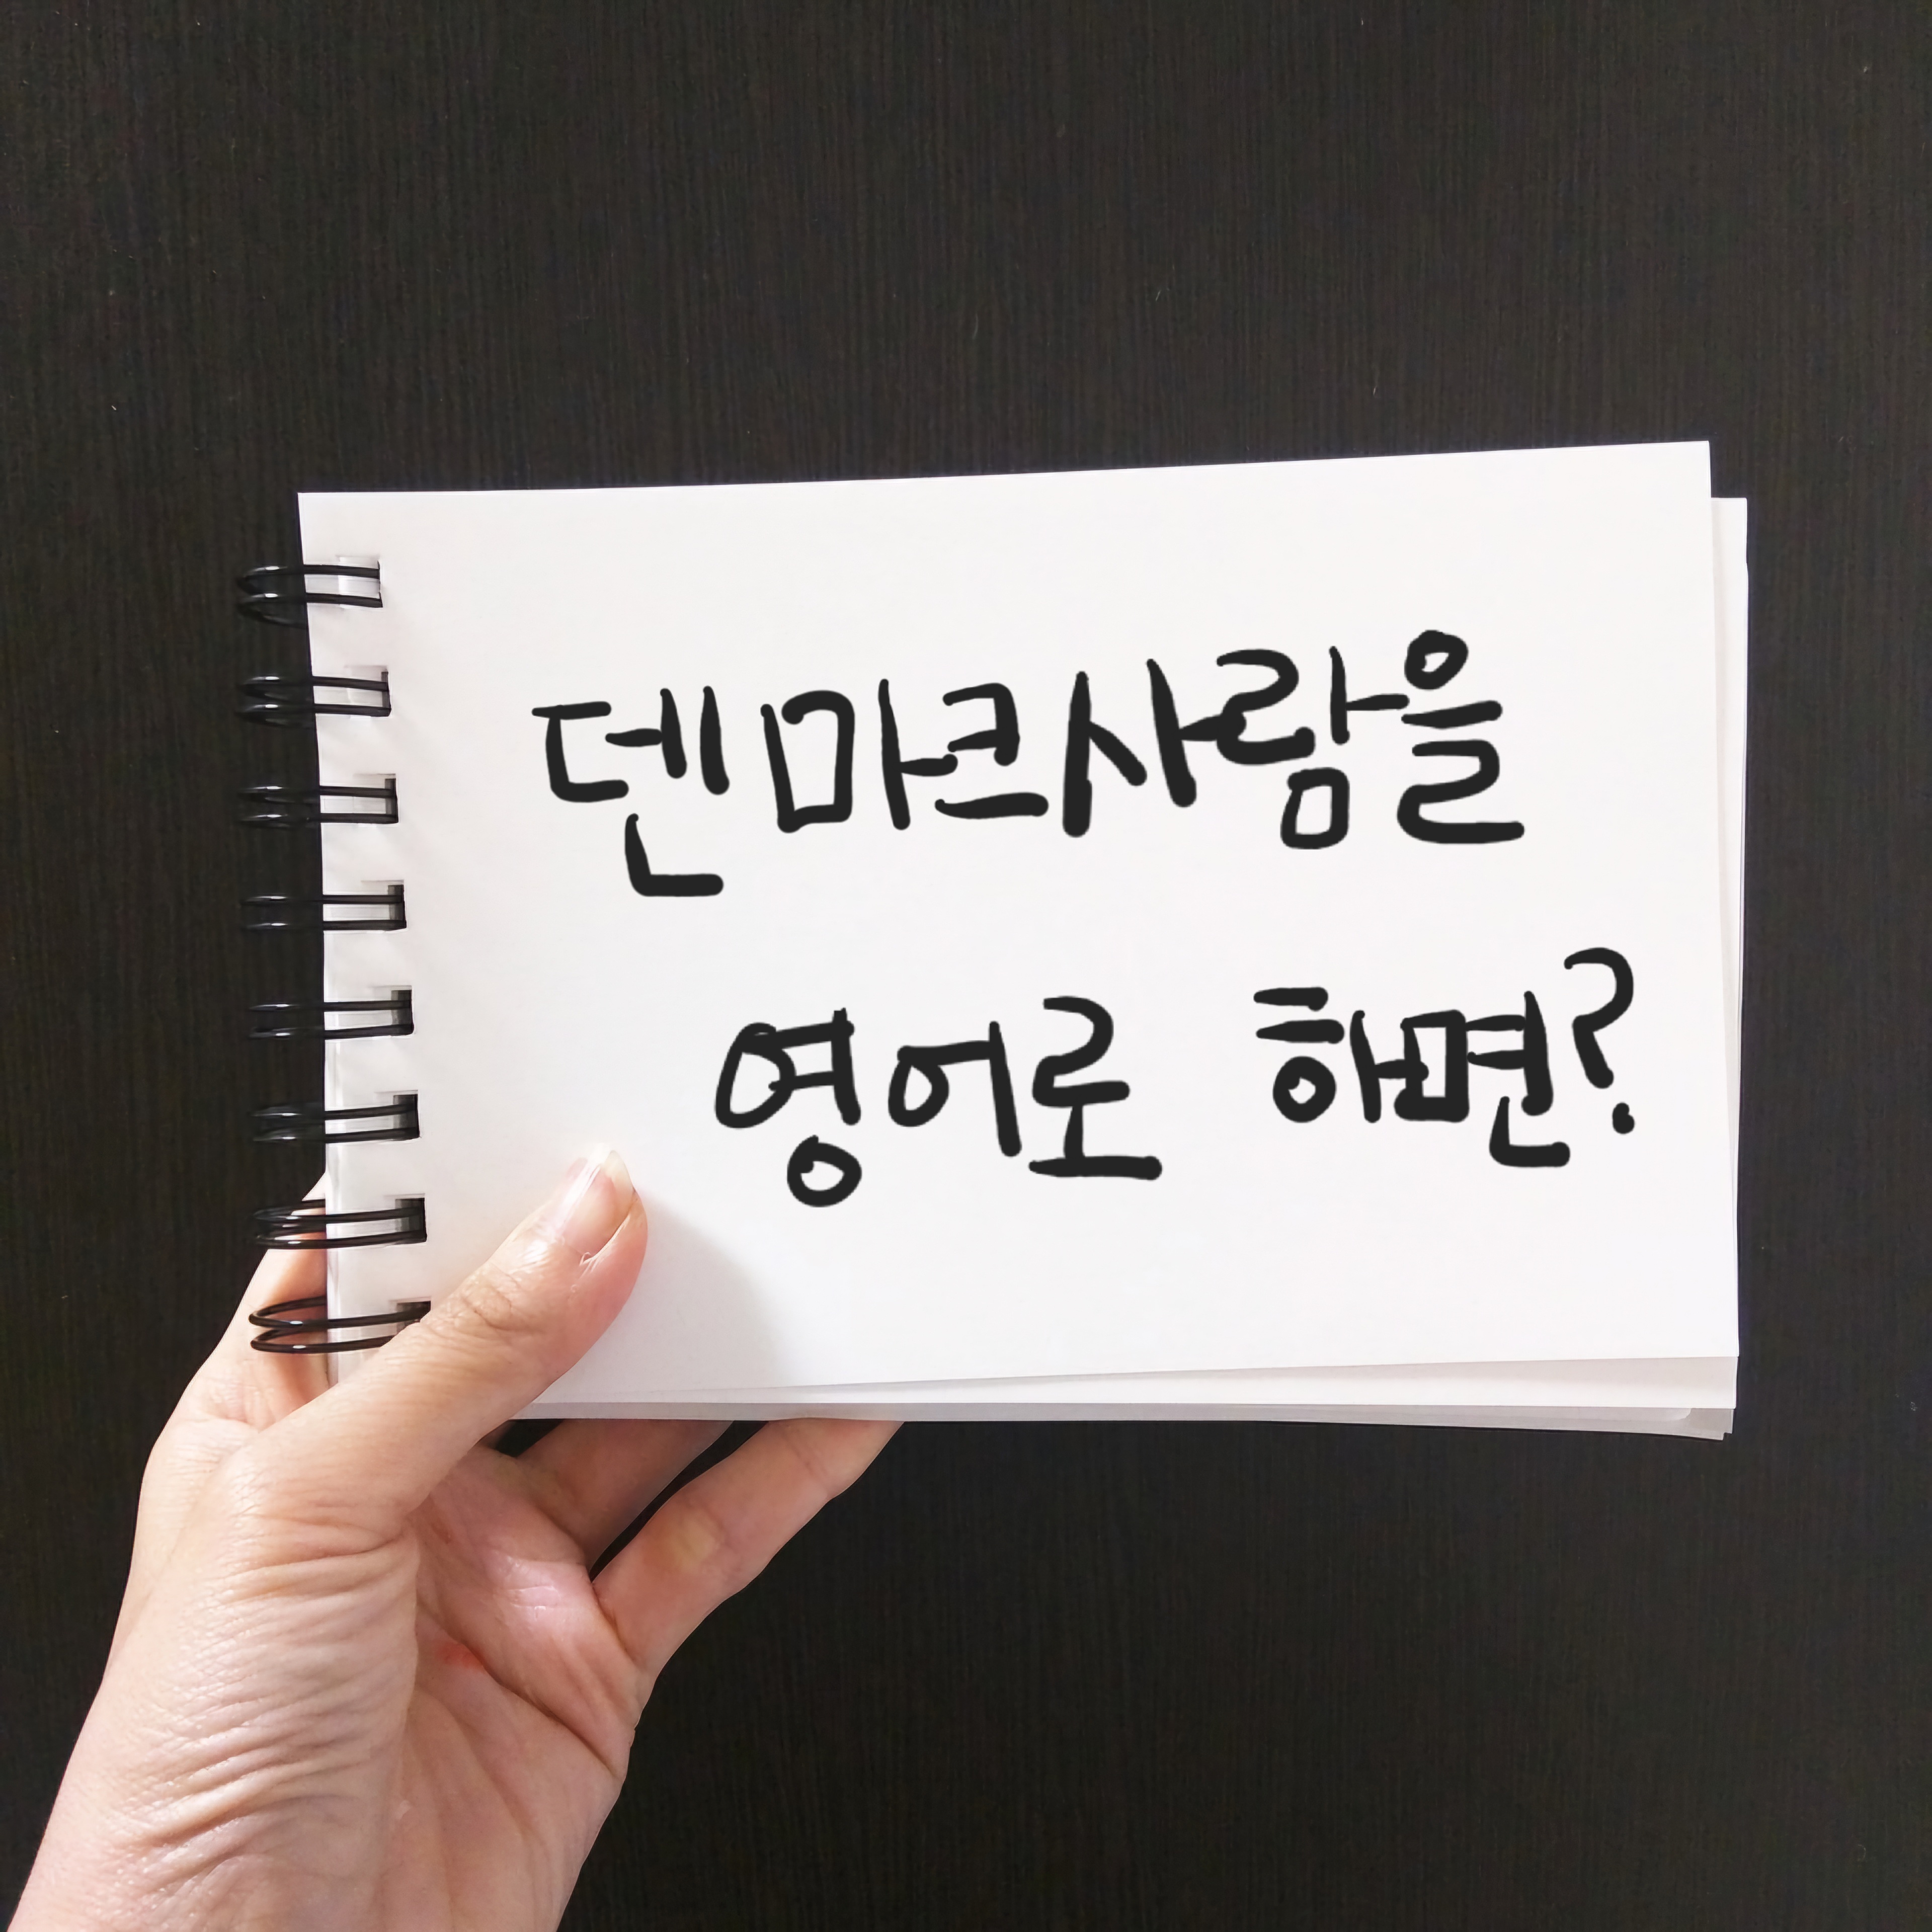 덴마크사람을
영어로 하면?